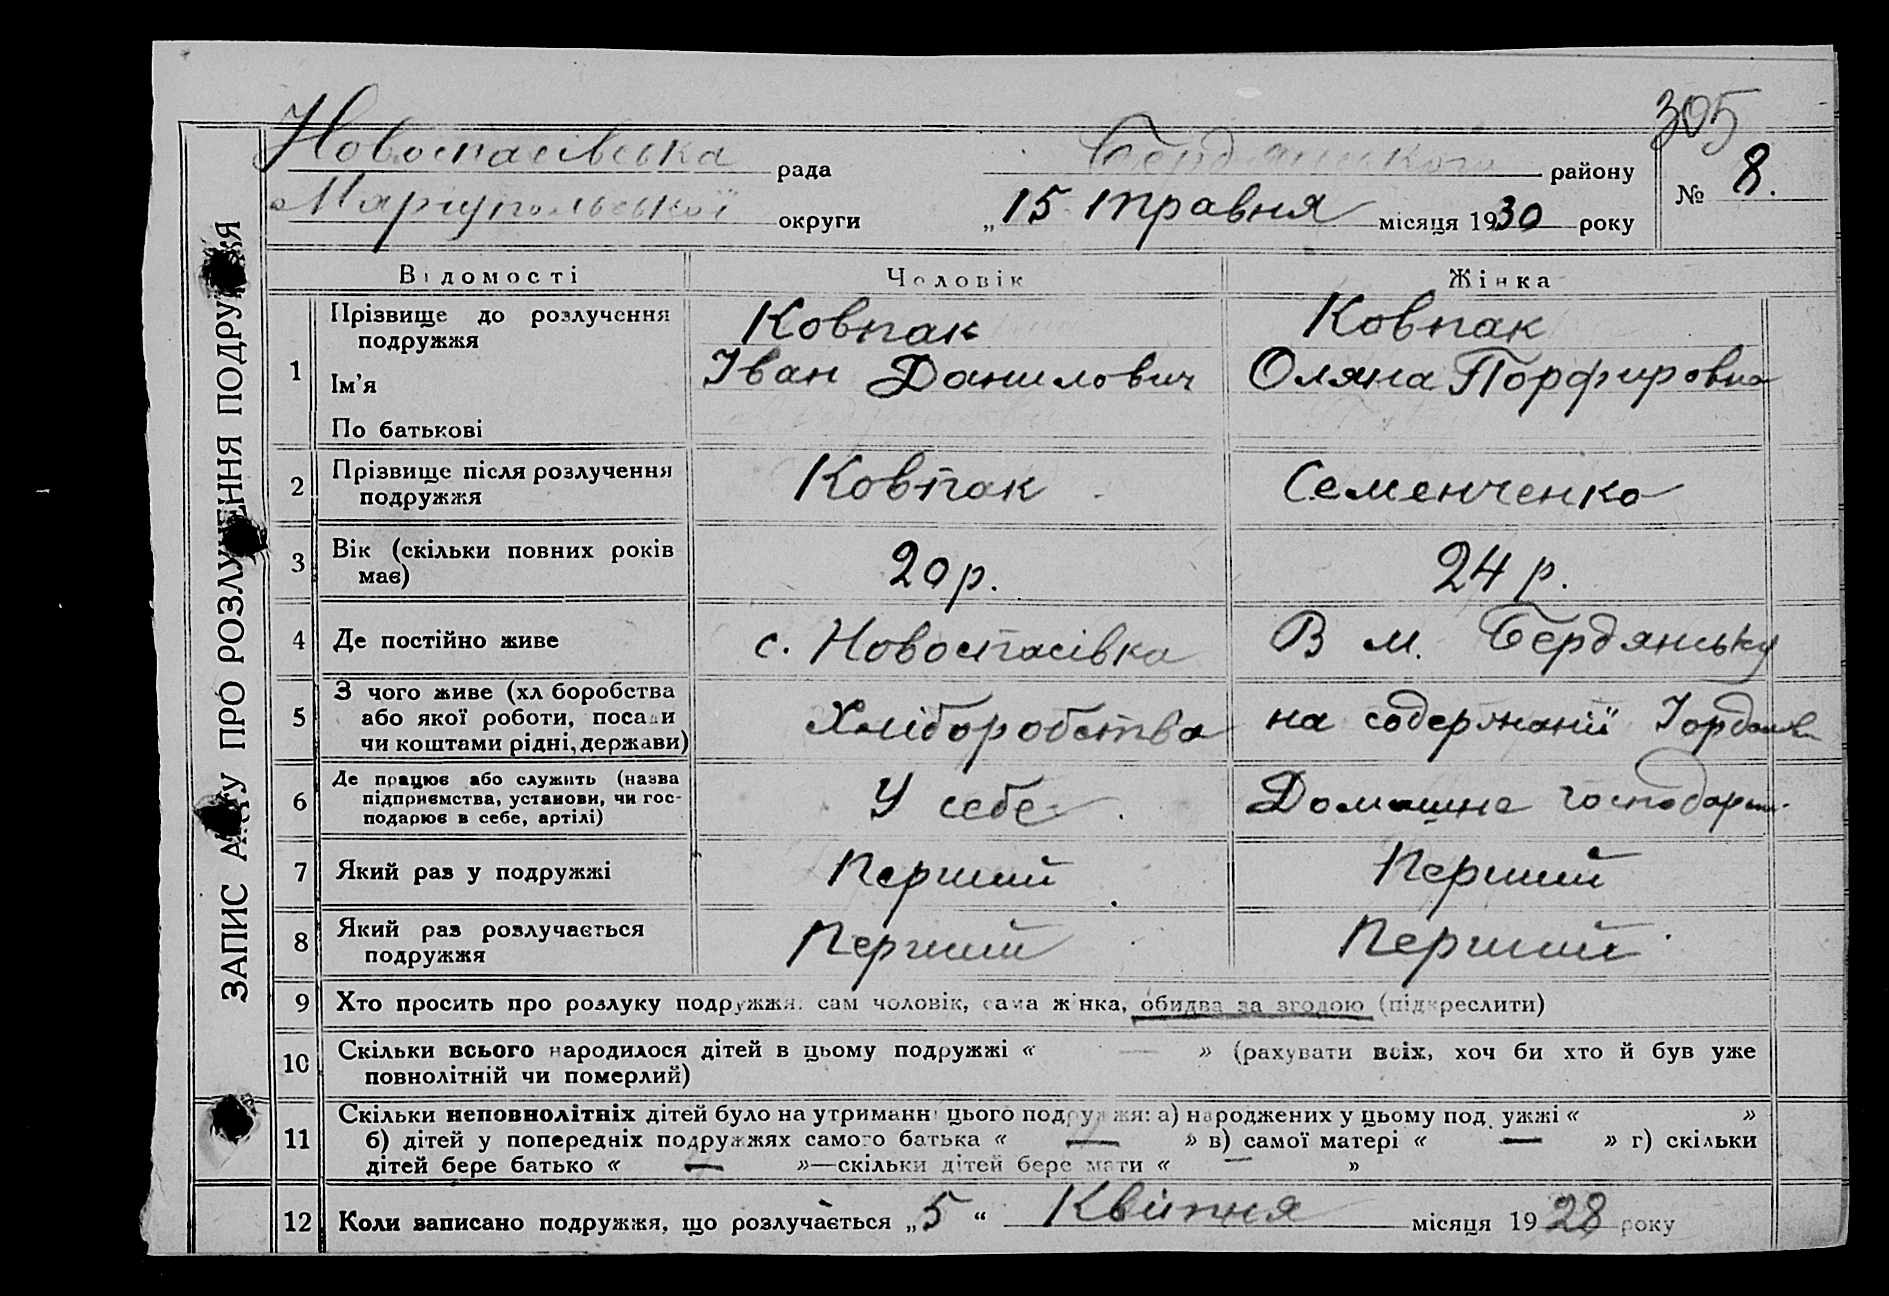 305
Новоспасівська рада Бердянського району
Маріупольської округи „15 Травня місяця 1930 року
№ 8.
ЗАПИС АКТУ ПРО РОЗЛУЧЕННЯ ПОДРУЖЖЯ
Відомості Чоловік Жінка
1 Прізвище до розлучення Ковпак Ковпак
подружжя
Ім'я Іван Данилович Оляна Порфировна
По батькові
2 Прізвище після розлучення Ковпак Семенченко
подружжя
3 Вік (скільки повних років 20 р. 24 р.
має)
4 Де постійно живе с. Новоспасівка В м. Бердянську
5 З чого живе (хліборобства
або якої роботи, посади Хліборобства на содержанії
чи коштами рідні, держави)
6 Де працює або служить (назва
підприємства, установи, чи гос- У себе Домашнє
подарює в себе, артілі)
7 Який раз у подружжі Перший Перший
8 Який раз розлучається Перший Перший
подружжя
9 Хто просить про розлуку подружжя: сам чоловік, сама жінка, обидва за згодою (підкреслити)
10 Скільки всього народилося дітей в цьому подружжі « — » (рахувати всіх, хоч би хто й був уже
повнолітній чи померлий)
11 Скільки неповнолітніх дітей було на утриманні цього подружжя: а) народжених у цьому подружжі « »
б) дітей у попередніх подружжях самого батька « — » в) самої матері « — » г) скільки
дітей бере батько « — »—скільки дітей бере мати « — »
12 Коли записано подружжя, що розлучається „5“ Квітня місяця 1928 року